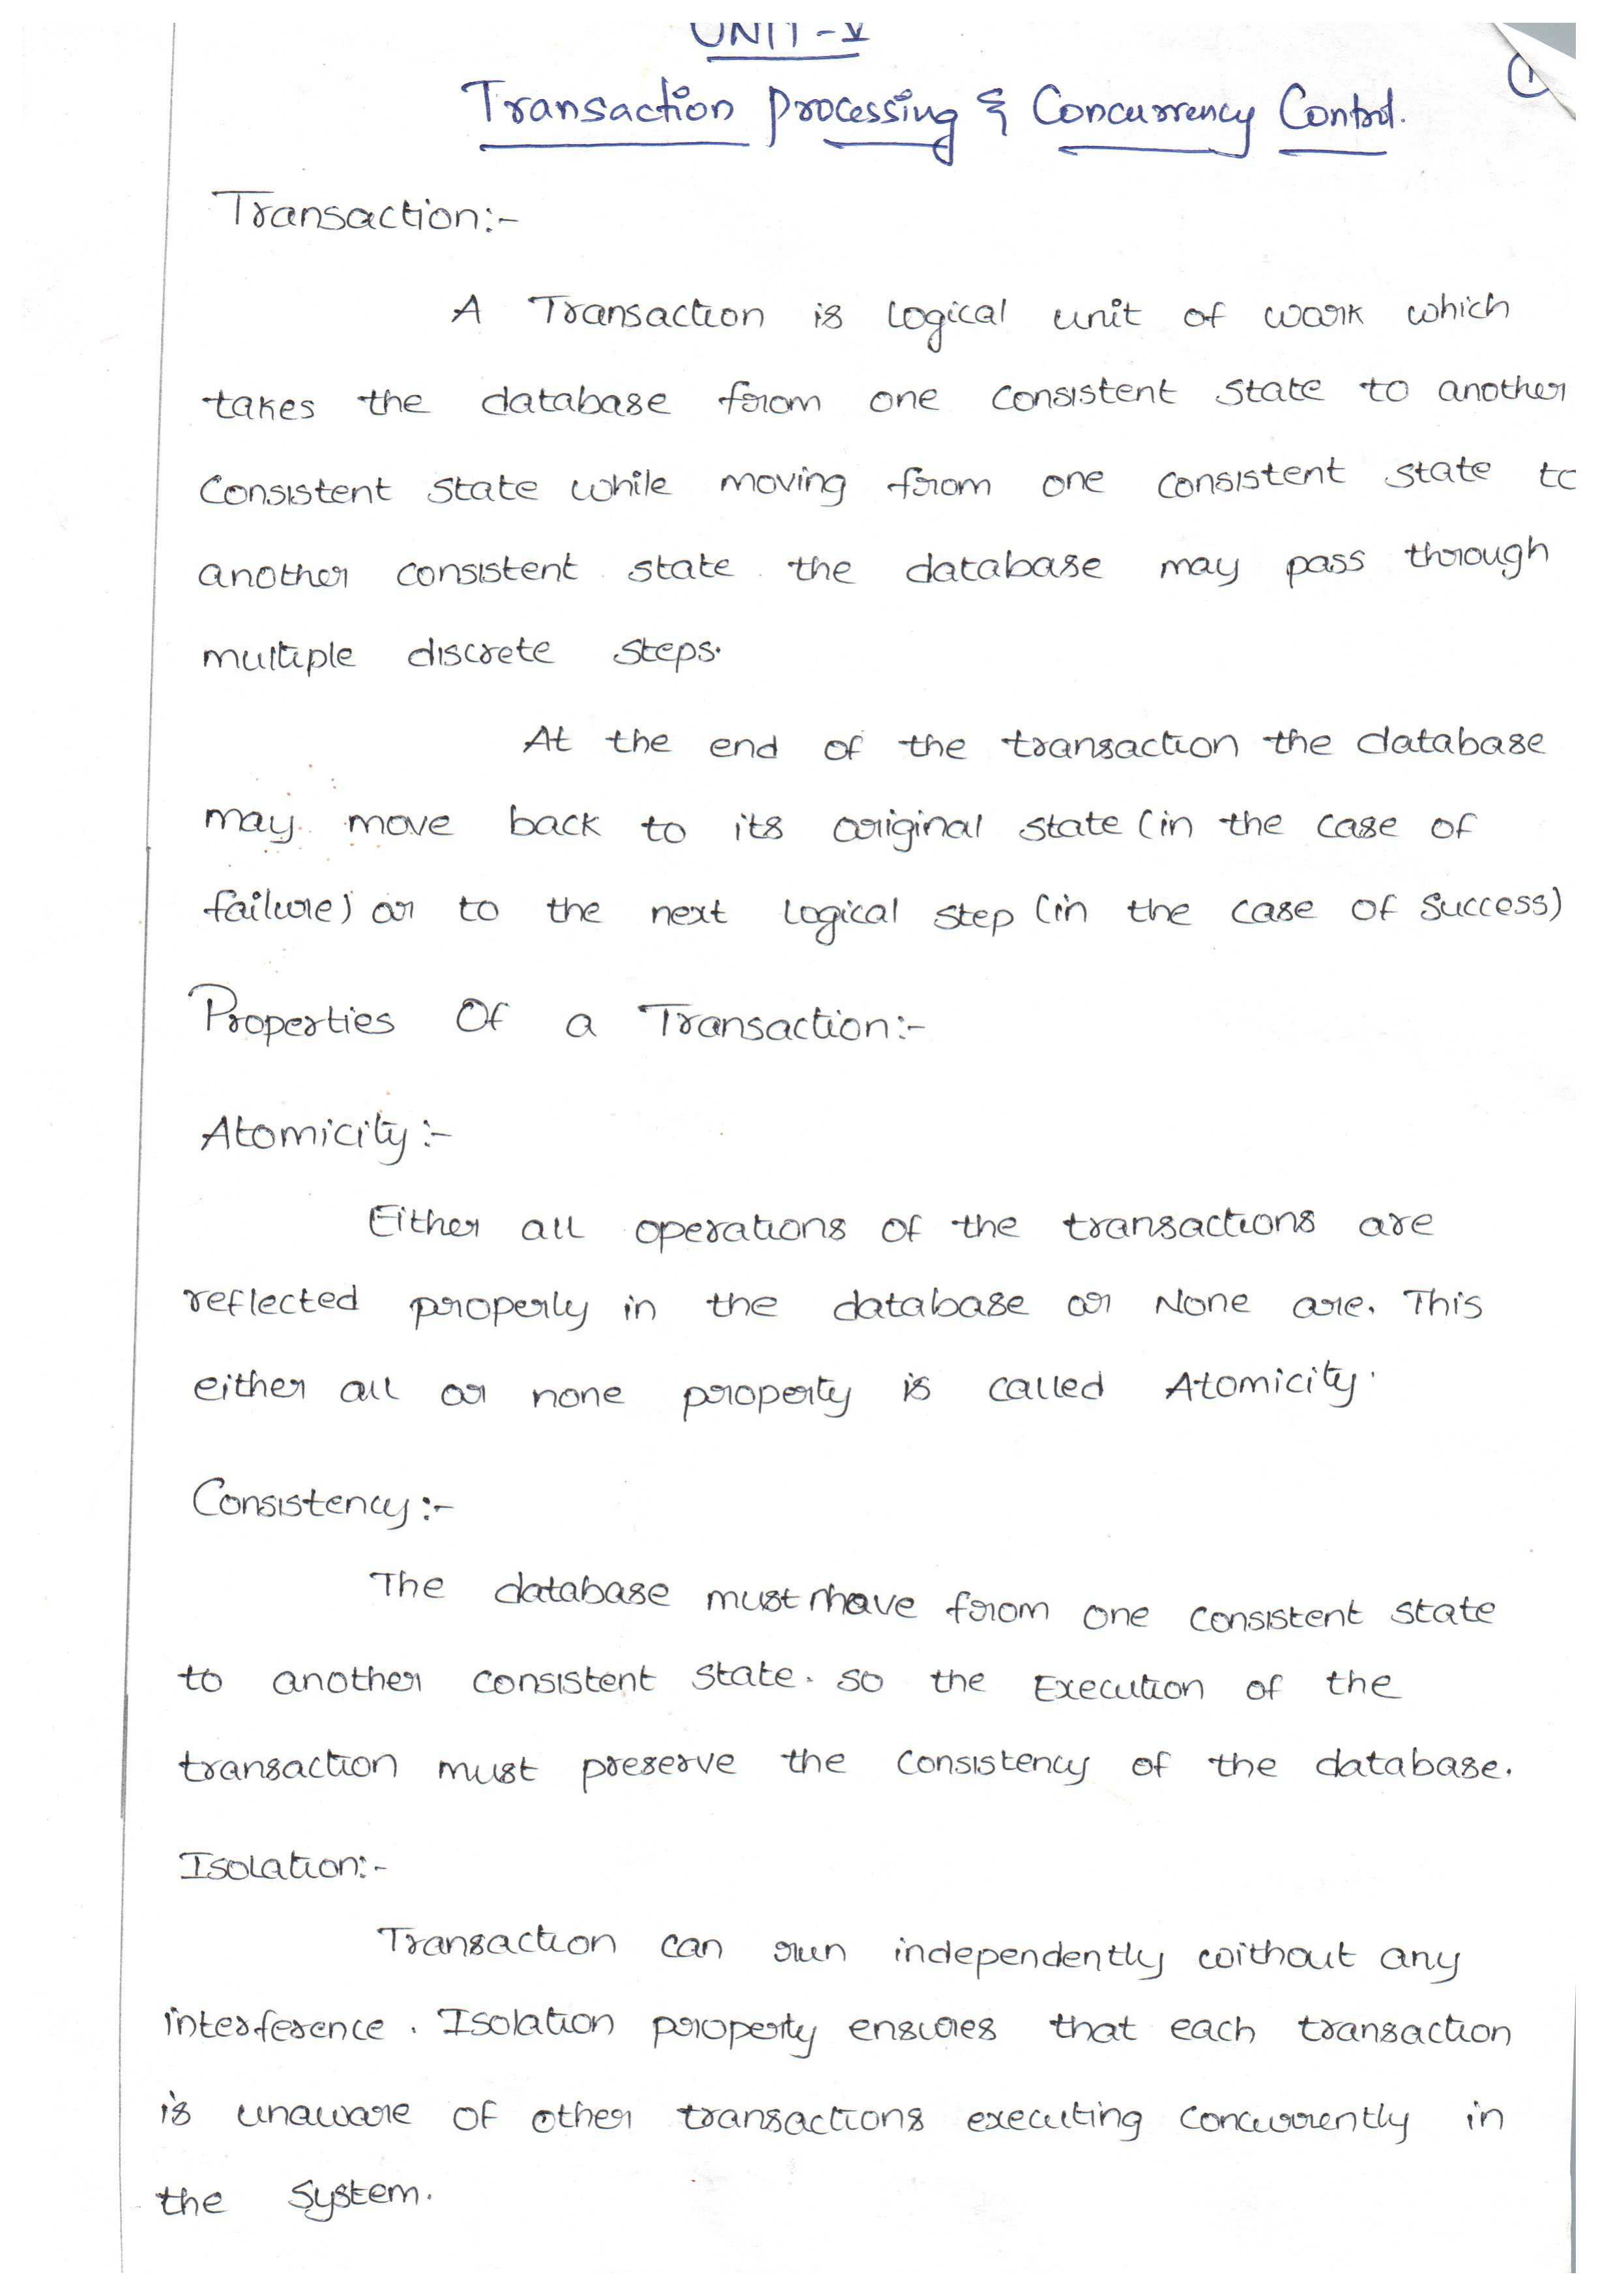 UNIT-V
Transaction Processing & Concurrency Control.
Transaction:-
A Transaction is logical unit of work which
takes the database from one consistent state to another
Consistent state while moving from one consistent state to
another consistent state the database may pass through
multiple discrete steps.
At the end of the transaction the database
may move back to its original state (in the case of
failure) or to the next logical step (in the case of success)
Properties Of a Transaction:-
Atomicity:-
Either all operations of the transactions are
reflected properly in the database or None are. This
either all or none property is called Atomicity.
Consistency:-
The database must move from one consistent state
to another consistent state. so the Execution of the
transaction must preserve the consistency of the database.
Isolation:-
Transaction can run independently without any
interference. Isolation property ensures that each transaction
is unaware of other transactions executing concurrently in
the system.